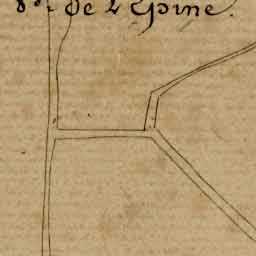 de L'Epine.